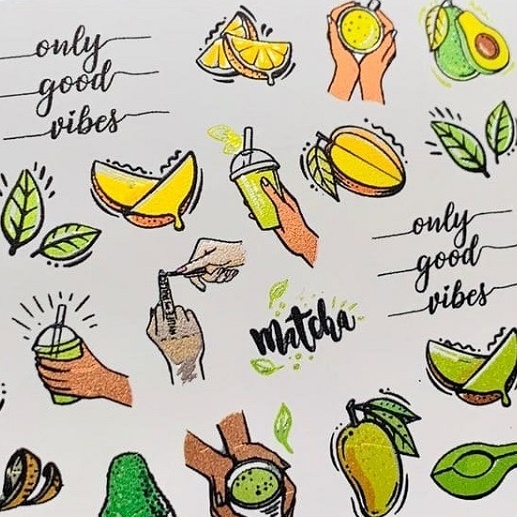 only
good
vibes
only
good
vibes
Matcha